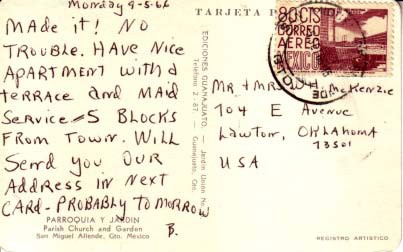 Monday 9-5-66
MADE it! NO
TROUBLE. HAVE NICE
APARTMENT WITH A
TERRACE AND MAID
SERVICE-5 BLOCKS
FROM TOWN. WILL
SEND YOU OUR
ADDRESS IN NEXT
CARD- PROBABLY TOMORROW
B.
PARROQUIA Y JARDIN
Parish Church and Garden
San Miguel Allende, Gto. México
EDICIONES GUANAJUATO. — Jardín Unión No.
Teléfono 2-87. — Guanajuato, Gto.
TARJETA
80 CTS
CORREO
AEREO
MEXICO
MR. + MRS McKENZIE
704 E AVENUE
LAWTON, OKLAHOMA
73501
USA
REGISTRO ARTISTICO